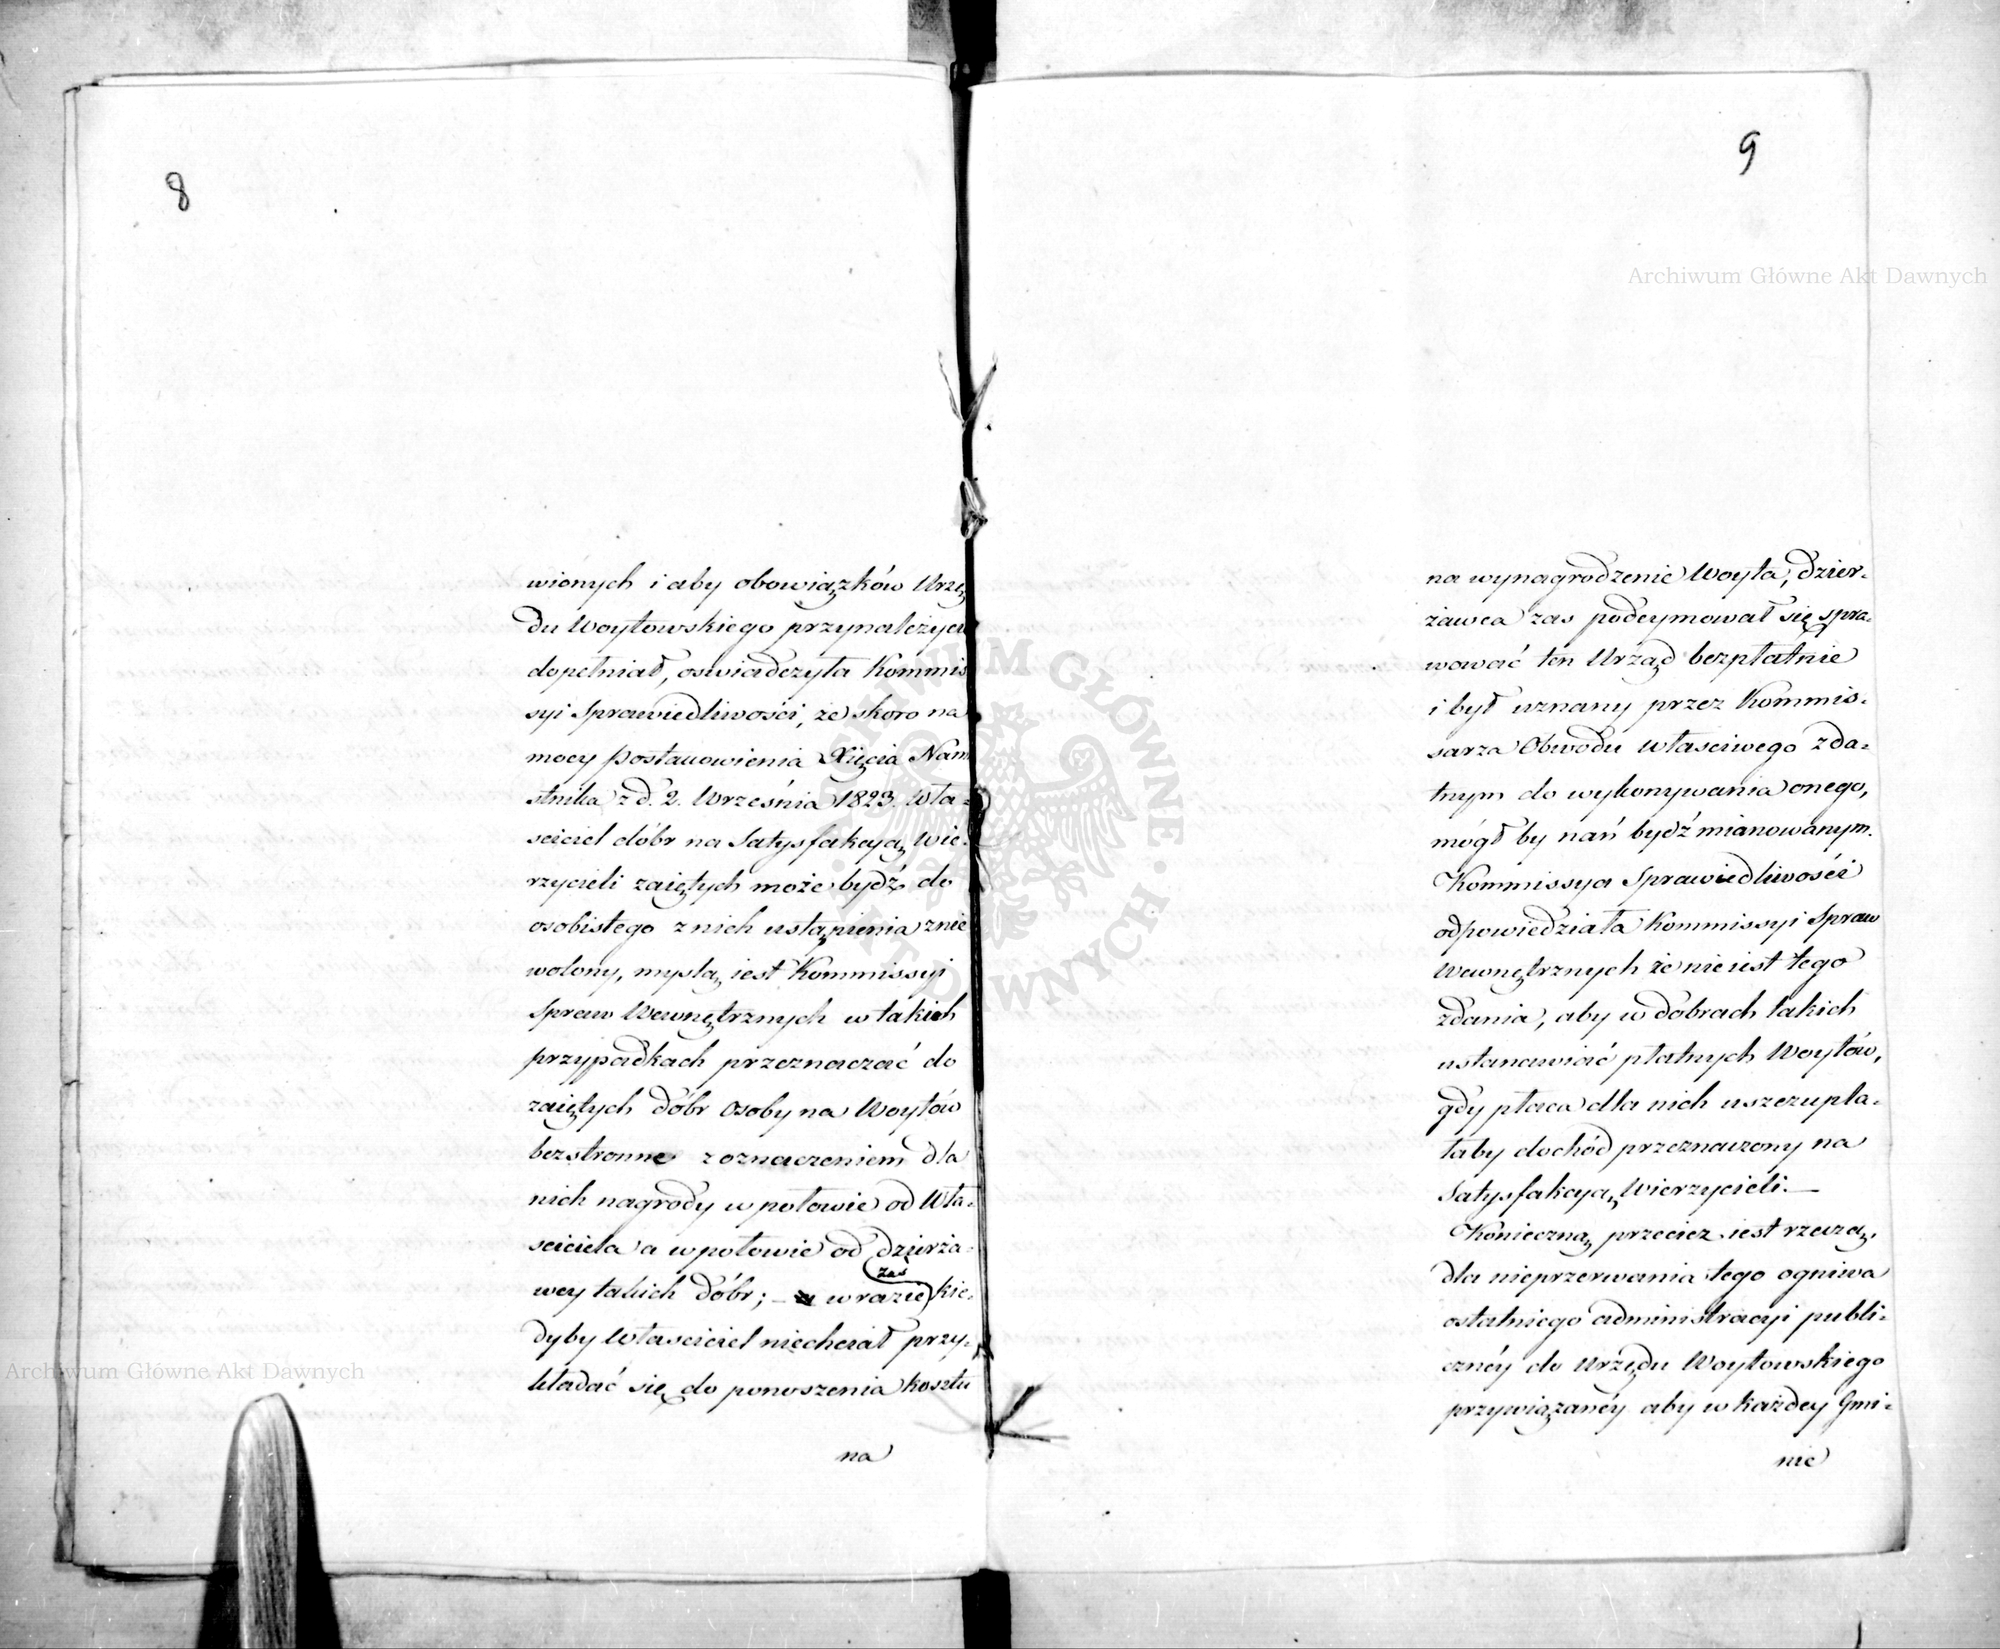 8
wionych i aby obowiązków Urzę
du Woytowskiego przynależycie
dopełniał, oswiadczyła Kommis
syi Sprawiedliwości, że skoro na
mocy postanowienia Xięcia Nam
stnika z d. 2. Września 1823. Wła-
sciciel dóbr na Satysfakcyą Wie-
rzycieli zaiętych może bydź do
osobistego z nich ustąpienia znie
wolony, myslą iest Kommissyi
Spraw Wewnętrznych w takich
przypadkach przeznaczać do
zaiętych dóbr osoby na Woytów
bezstronne z oznaczeniem dla
nich nagrody w połowie od Wła-
sciciela a w połowie od dzierża-
wcy takich dóbr; – w razie zaś kie-
dyby Własciciel niechciał przy-
kładać się do ponoszenia kosztu
na
9
na wynagrodzenie Woyta, dzier-
żawca zas podeymował się spra-
wować ten Urząd bezpłatnie
i był uznany przez Kommis-
sarza Obwodu własciwego zda-
tnym do wykonywania onego,
mógł by nań bydź mianowanym.
Kommissya Sprawiedliwości
odpowiedziała Kommissyi Spraw
Wewnętrznych że nie iest tego
zdania, aby w dobrach takich
ustanawiać płatnych Woytów,
gdy płaca dla nich uszczupla-
łaby dochód przeznaczony na
Satysfakcyą Wierzycieli. –
Konieczną przecież iest rzeczą,
dla nieprzerwania tego ogniwa
ostatniego administracyi publi-
cznéy do Urzędu Woytowskiego
przywiązanéy aby w każdey Gmi-
nie
Archiwum Główne Akt Dawnych
Archiwum Główne Akt Dawnych
ARCHIWUM GŁÓWNE AKT DAWNYCH